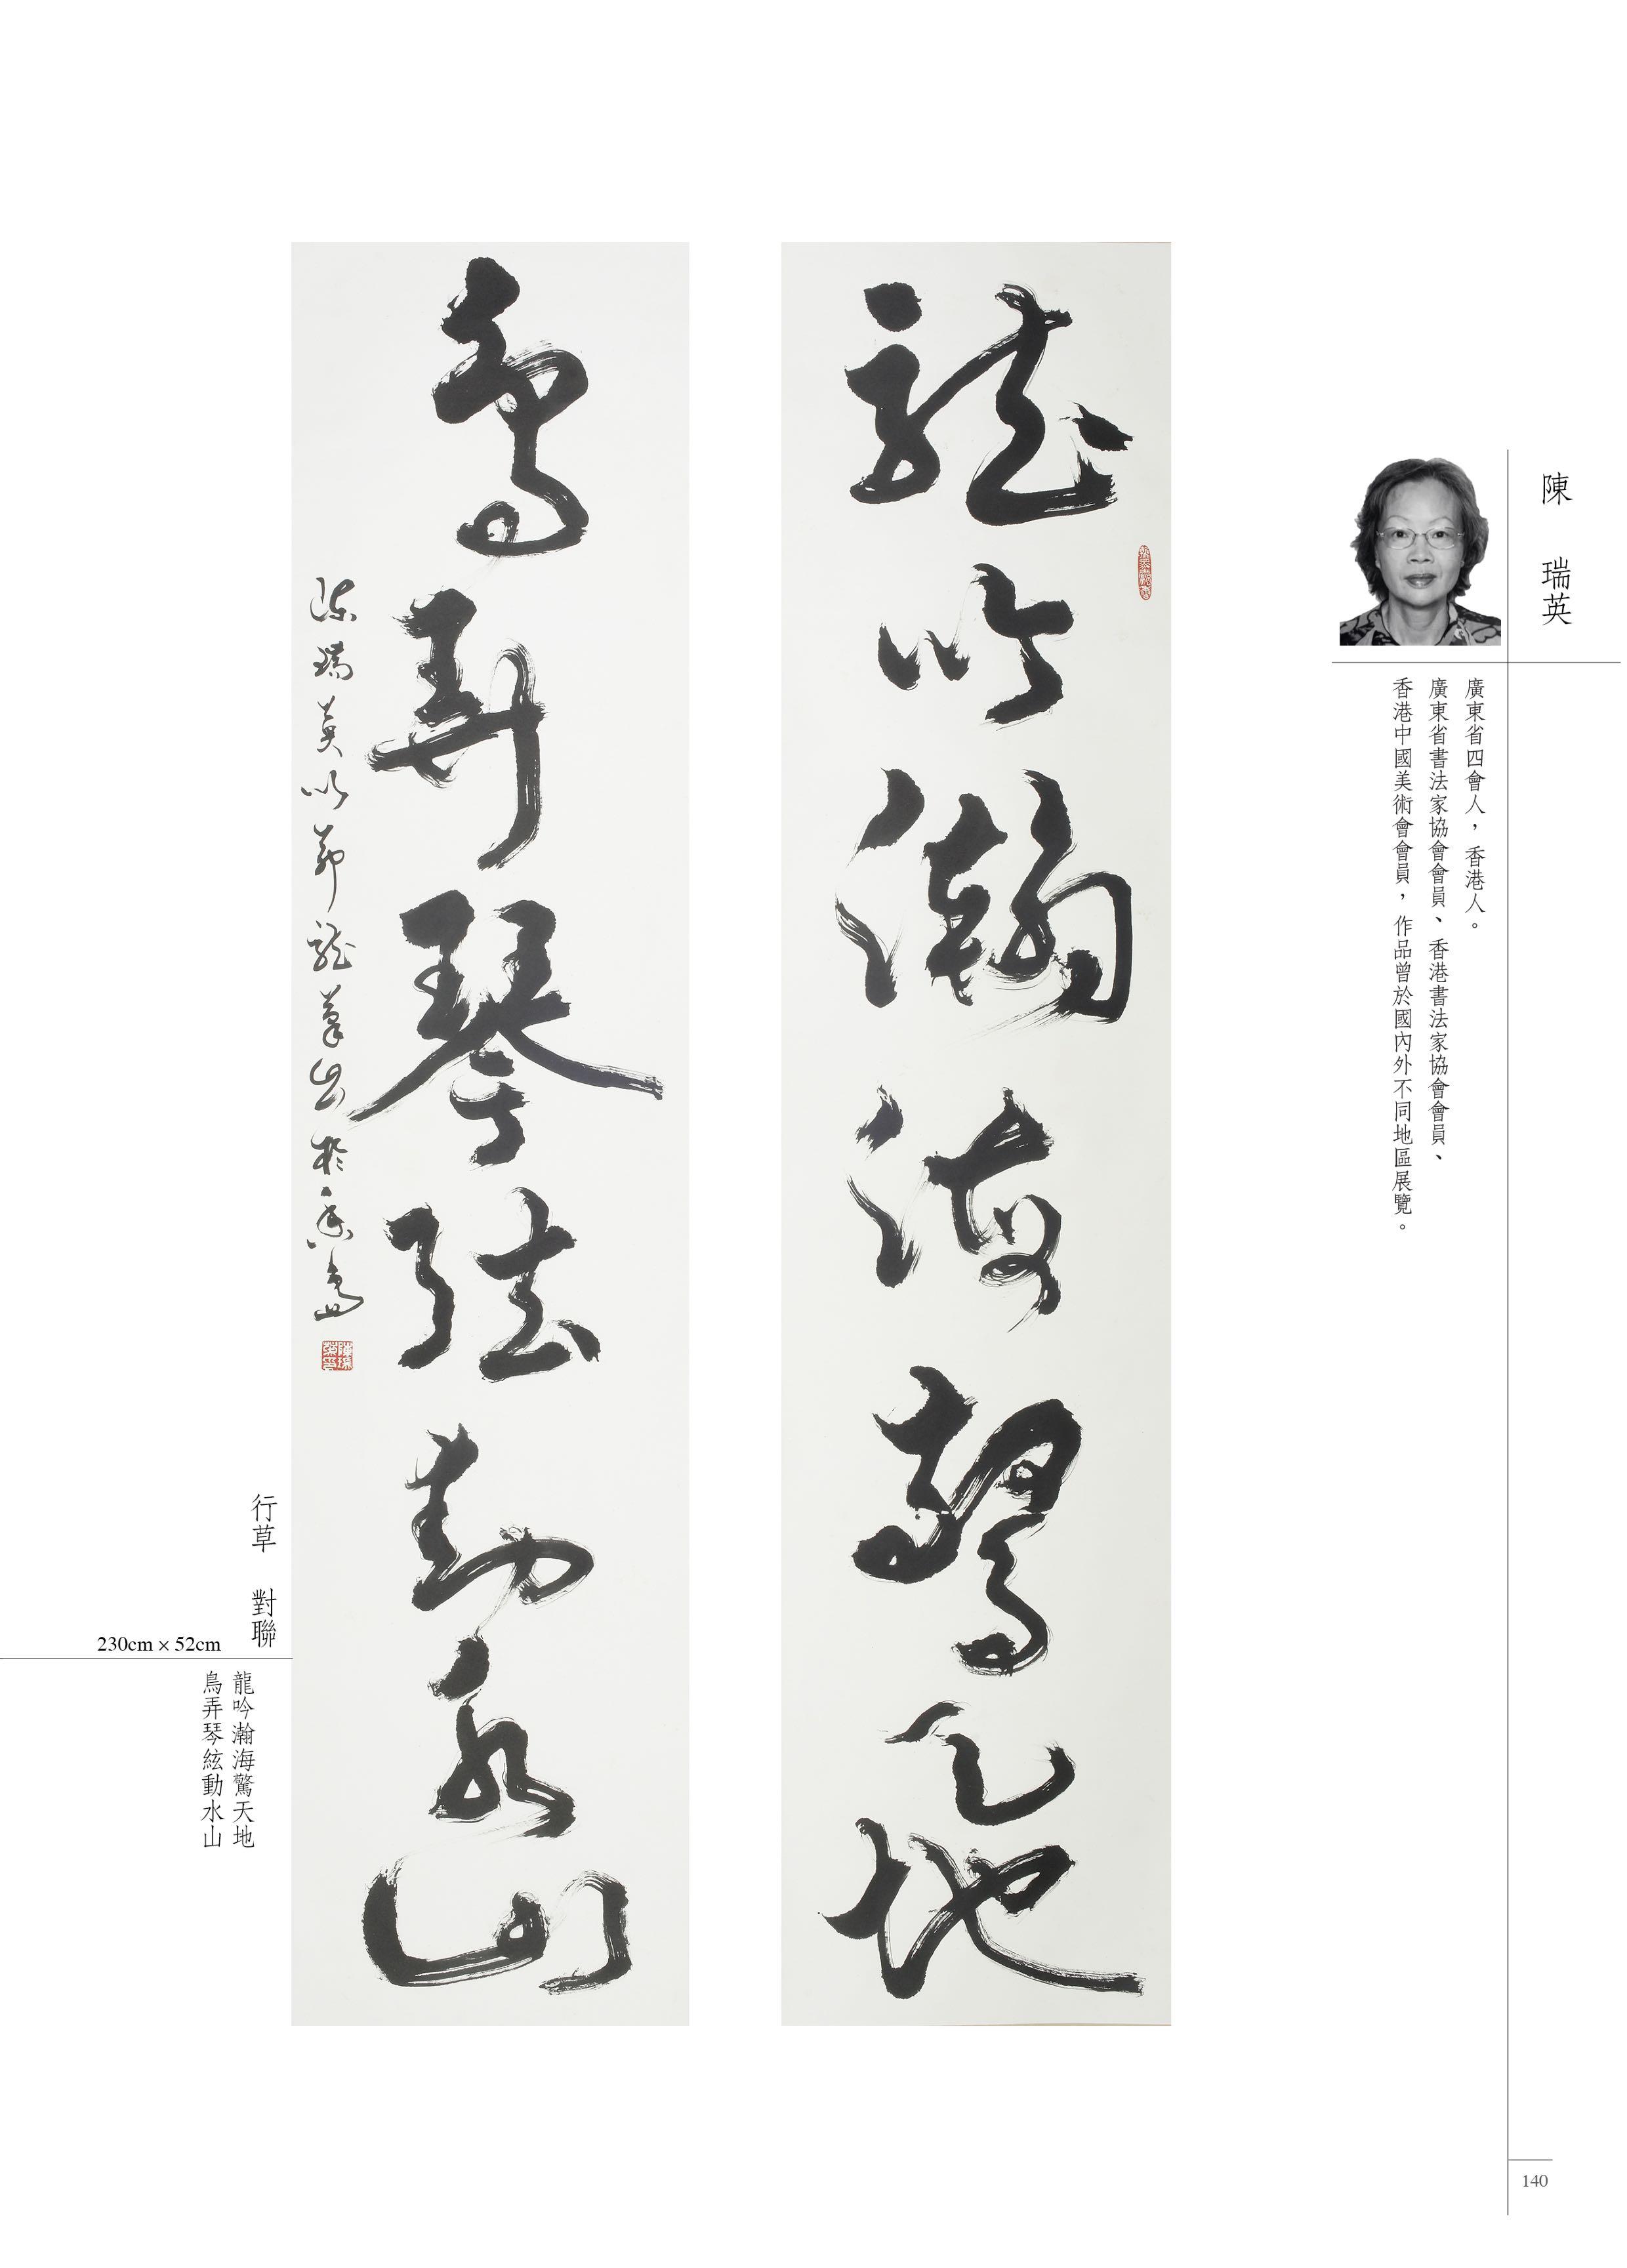 陳 瑞英
廣東省四會人，香港人。
廣東省書法家協會會員、香港書法家協會會員、
香港中國美術會會員，作品曾於國內外不同地區展覽。
龍吟瀚海驚天地
鳥弄琴絃動水山
陳瑞英以茆龍筆書於香島
行草 對聯
230cm × 52cm
龍吟瀚海驚天地
鳥弄琴絃動水山
140